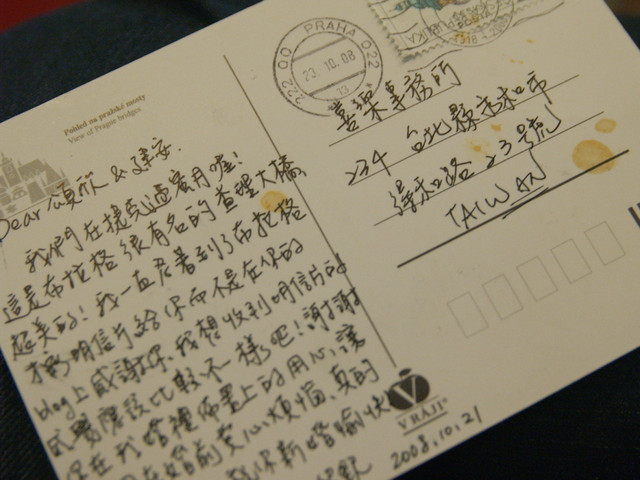 Pohled na pražské mosty
View of Prague bridges
Dear 頌欣 & 建安
我們在捷克過蜜月喔!
這是布拉格很有名的查理大橋,
超美的!我一直忍著到了布拉格
才寄明信片給你而不是在你的
blog上感謝你,我想收到明信片的
感覺應該比較不一樣吧!謝謝
你在我婚禮佈置上的用心,讓
在婚前 心煩惱,真的
你新婚愉快
2008.10.21
PRAHA 022
222 00
23.10.08
13
善樂事務所
234 台北縣永和市
得和路23號
TAIWAN
VRÁJI